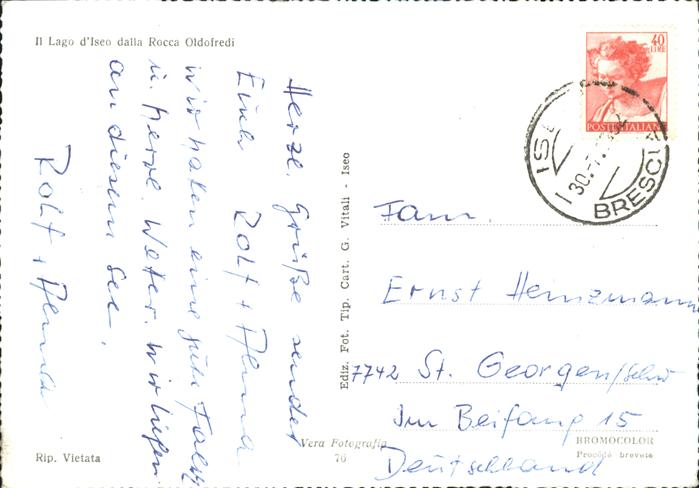 Il Lago d'Iseo dalla Rocca Oldofredi
40
LIRE
POSTE ITALIANE
ISE
30.-7.
BRESCIA
Herzl. Grüße sendet
Euch Rolf +
wir haben eine gute
u. herrl. Wetter. wir
an diesem See.
Rolf +
Ediz. Fot. Tip. Cart. G. Vitali - Iseo
Fam.
Ernst Heinzmann
7742 St. Georgen/Schw
Im Beifang 15
Deutschland
Vera Fotografia
76
BROMOCOLOR
Procédé breveté
Rip. Vietata